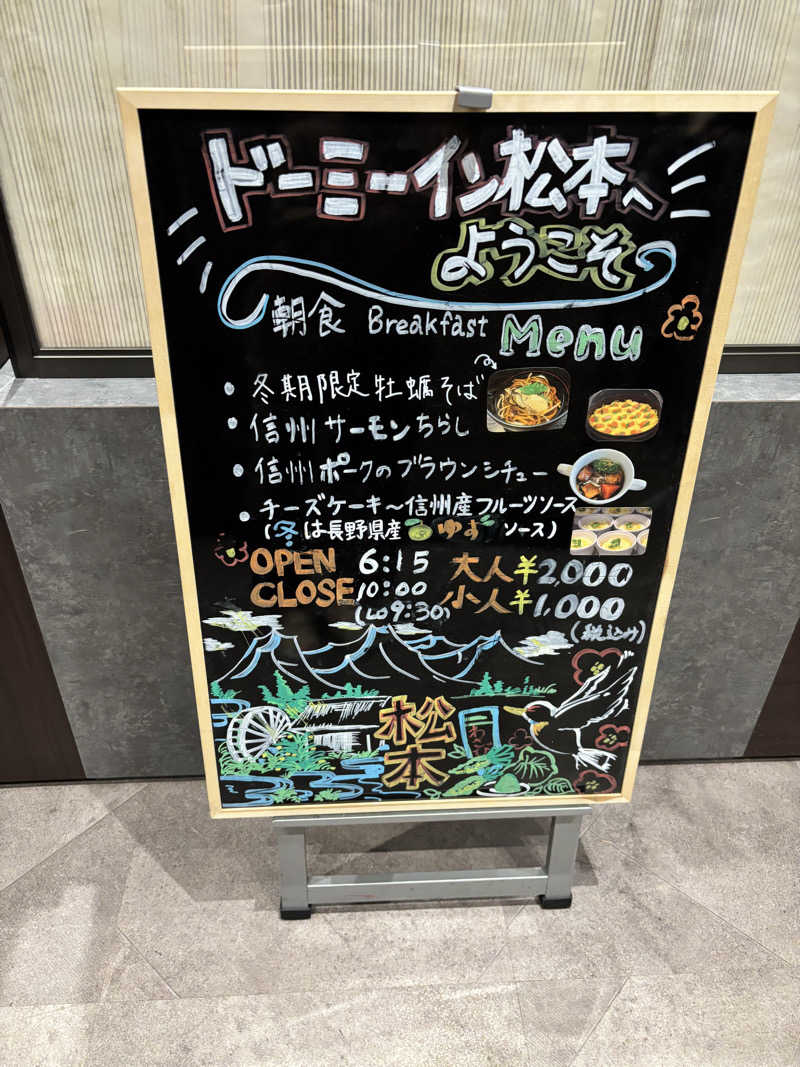 ドーミーイン松本へ
ようこそ
朝食 Breakfast Menu
・冬期限定牡蠣そば
・信州サーモンちらし
・信州ポークのブラウンシチュー
・チーズケーキ～信州産フルーツソース
(冬は長野県産ゆずソース)
OPEN 6:15 大人¥2,000
CLOSE 10:00 小人¥1,000
(LO 9:30) (税込み)
松本
わさび